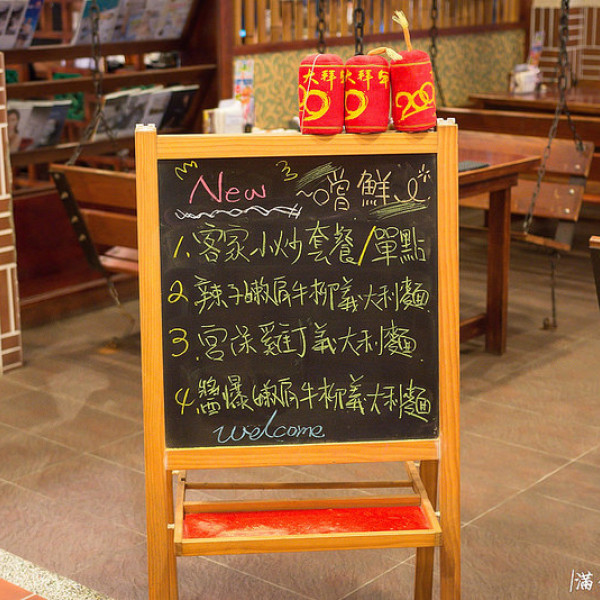 大拜年
大拜年
2009
New ~嚐鮮
1. 客家小炒套餐/單點
2. 辣子嫩肩牛柳義大利麵
3. 宮保雞丁義大利麵
4. 醬爆嫩肩牛柳義大利麵
welcome
滿